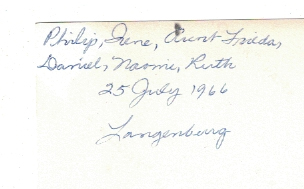 Philip, Irene, Aunt Frieda,
Daniel, Naomi, Ruth
25 July 1966
Langenburg